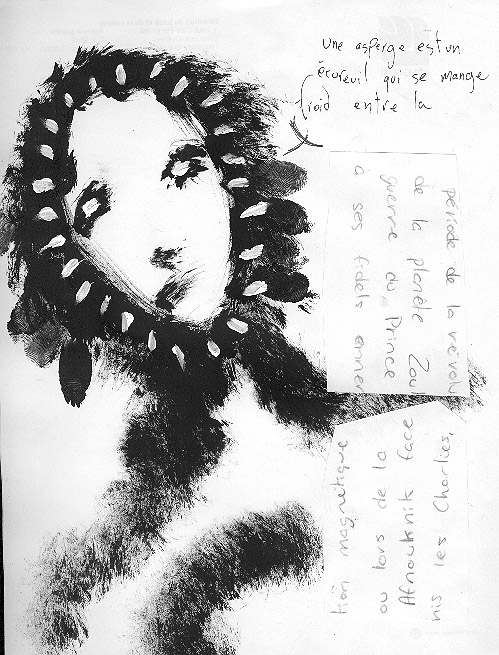 Une asperge est un
écureuil qui se mange
froid entre la
période de la révolu
de la planète Zou
guerre du Prince
à ses fidels
tion magnétique
ou lors de la
Afnouknik face
nis les Charlies,